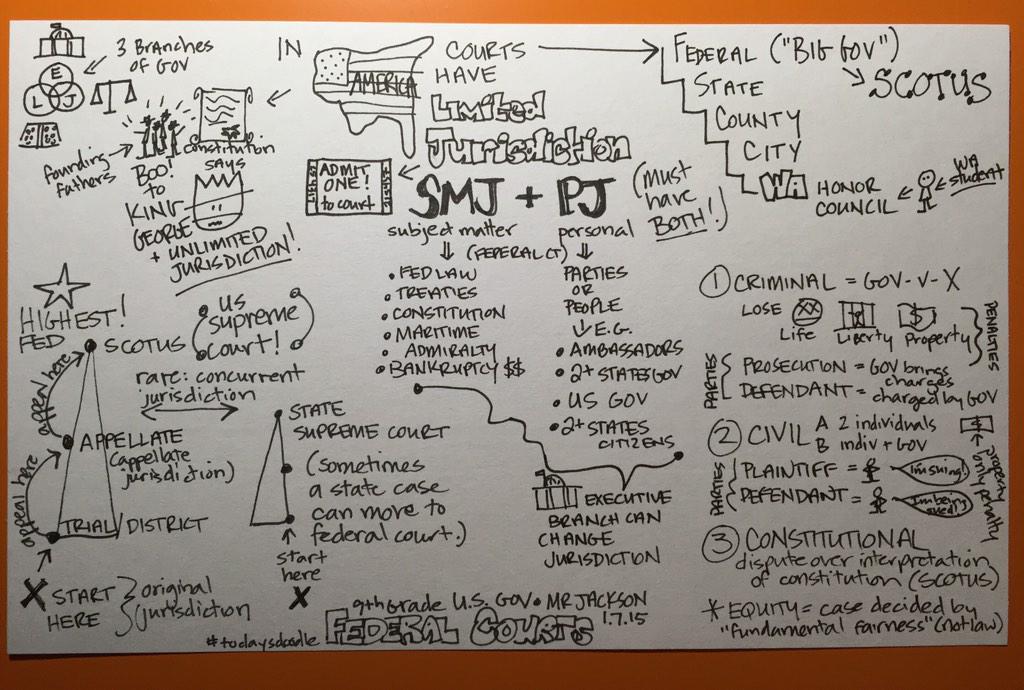 3 BRANCHES
OF GOV
E
L J
founding
fathers
Constitution
says
BOO!
to
KING
GEORGE
+ UNLIMITED
JURISDICTION!
IN
AMERICA
COURTS
HAVE
LIMITED
JURISDICTION
ADMIT
ONE!
to court
SMJ + PJ
(must
have
BOTH!)
subject matter
personal
(FEDERAL CT)
• FED LAW
• TREATIES
• CONSTITUTION
• MARITIME
ADMIRALTY
• BANKRUPTCY $$
PARTIES
OR
PEOPLE
E.G.
• AMBASSADORS
• 2+ STATES GOV
• US GOV
• 2+ STATES
CITIZENS
EXECUTIVE
BRANCH CAN
CHANGE
JURISDICTION
FEDERAL ("BIG GOV")
SCOTUS
STATE
COUNTY
CITY
WA HONOR
COUNCIL
WA
student
HIGHEST!
FED
SCOTUS
US
supreme
court!
rare: concurrent
jurisdiction
appeal here
APPELLATE
(appellate
jurisdiction)
appeal here
TRIAL/DISTRICT
X START
HERE
original
jurisdiction
STATE
SUPREME COURT
(sometimes
a state case
can move to
federal court.)
start
here
X
① CRIMINAL = GOV-V-X
LOSE
Life
Liberty
$
Property
PENALTIES
PARTIES
PROSECUTION = GOV brings
charges
DEFENDANT = charged by GOV
② CIVIL A 2 individuals
B indiv + GOV
$
property
only penalty
PARTIES
PLAINTIFF =
I'm suing!
DEFENDANT =
I'm being
sued!
③ CONSTITUTIONAL
dispute over interpretation
of constitution (SCOTUS)
* EQUITY = case decided by
"fundamental fairness" (not law)
9th Grade U.S. GOV • MR JACKSON
1.7.15
#todaysdoodle
FEDERAL COURTS